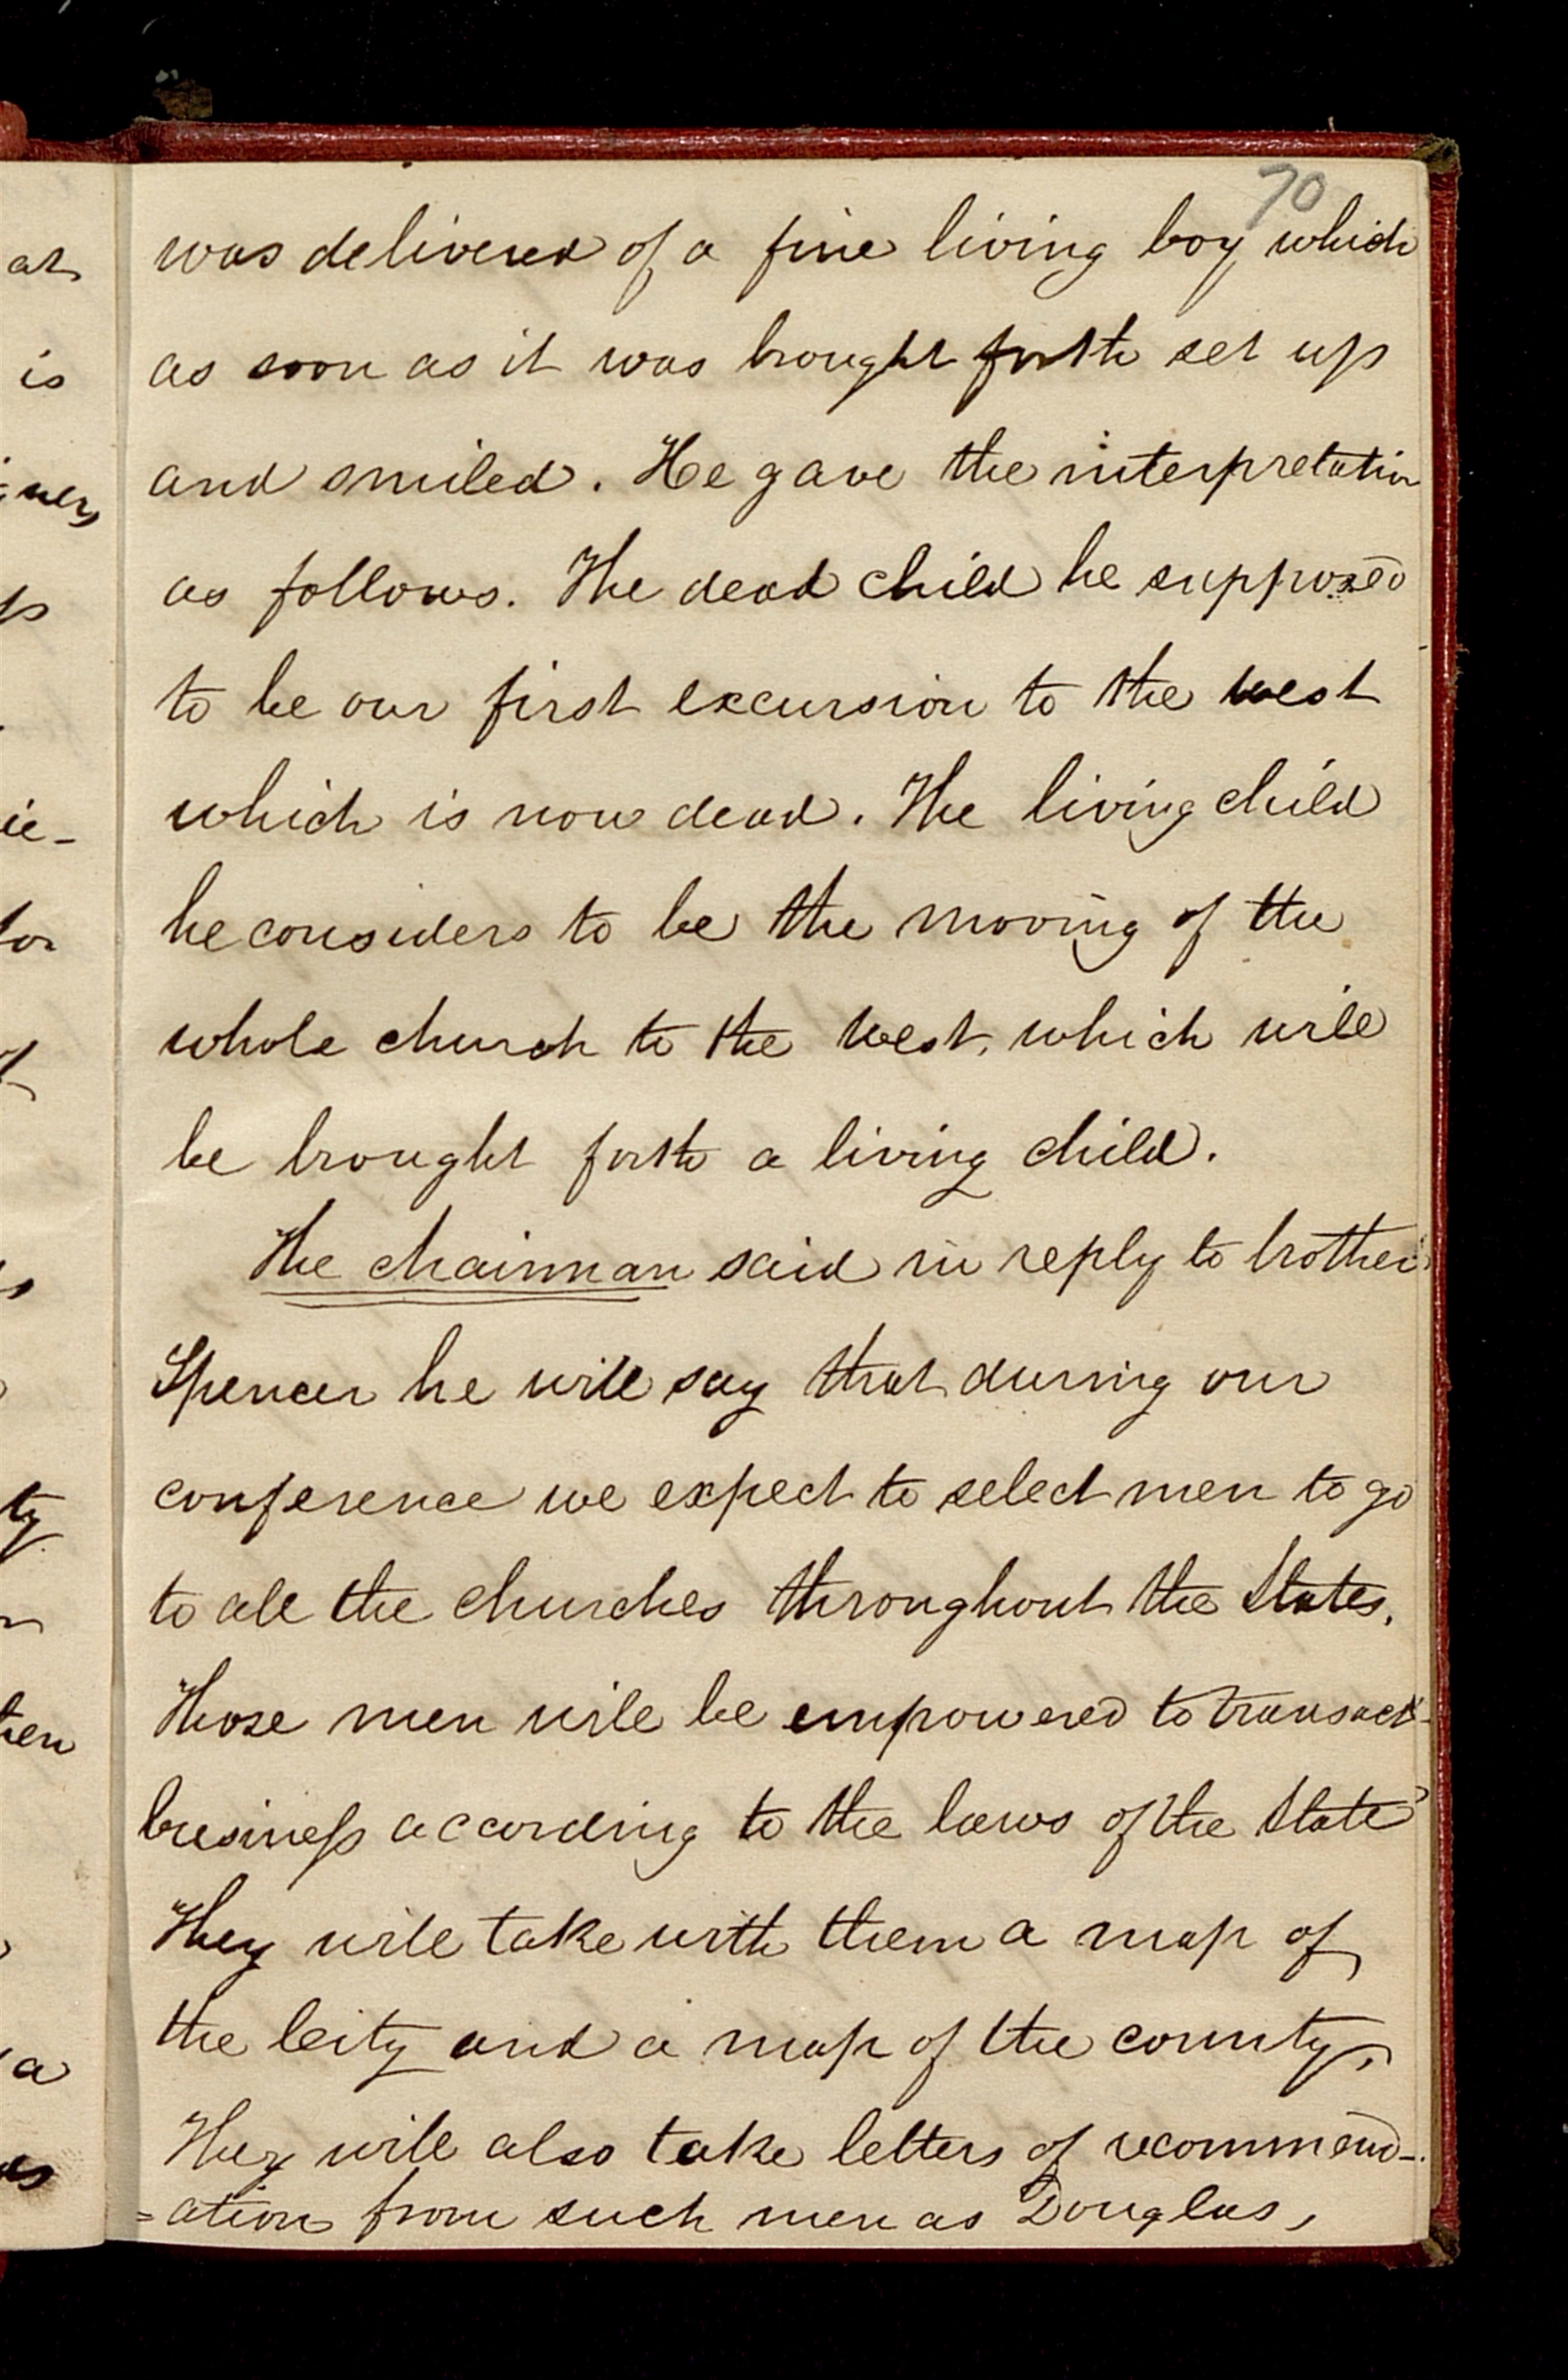 70
was delivered of a fine living boy which
as soon as it was brought forth set up
and smiled. He gave the interpretation
as follows. The dead child he supposed
to be our first excursion to the west
which is now dead. The living child
he considers to be the moving of the
whole church to the west, which will
be brought forth a living child.
The chairman said in reply to brother
Spencer he will say that during our
conference we expect to select men to go
to all the churches throughout the States.
Those men will be empowered to transact
business according to the laws of the State
They will take with them a map of
the City and a map of the county.
They will also take letters of recommend-
=ation from such men as Douglas,
at
is
ers
ie-
for
ty
a